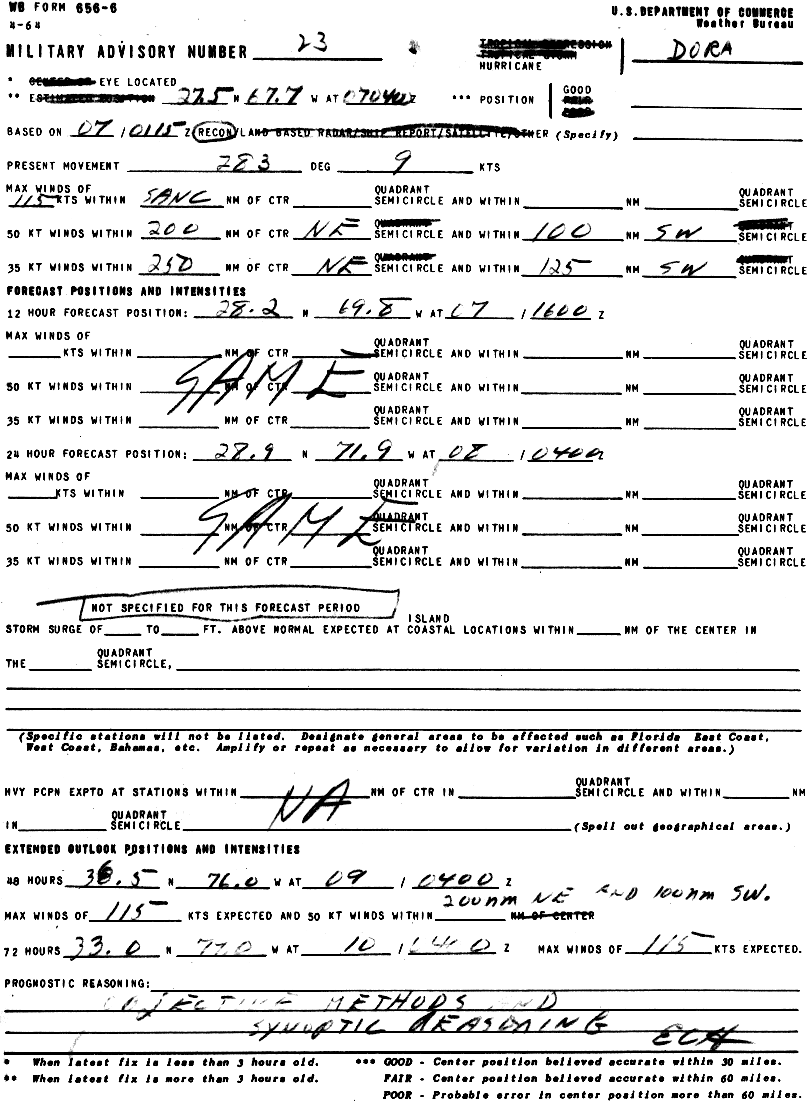 WB FORM 656-6
4-64
U.S. DEPARTMENT OF COMMERCE
Weather Bureau
MILITARY ADVISORY NUMBER 23
TROPICAL DEPRESSION
TROPICAL STORM
HURRICANE DORA
* CENTER OR EYE LOCATED
** ESTIMATED POSITION 27.5 N 67.7 W AT 070400Z *** POSITION GOOD FAIR POOR
BASED ON 07 / 0115 Z RECON/LAND BASED RADAR/SHIP REPORT/SATELLITE/OTHER (Specify)
PRESENT MOVEMENT 283 DEG 9 KTS
MAX WINDS OF
115 KTS WITHIN SANC NM OF CTR QUADRANT SEMICIRCLE AND WITHIN NM QUADRANT SEMICIRCLE
50 KT WINDS WITHIN 200 NM OF CTR NE QUADRANT SEMICIRCLE AND WITHIN 100 NM SW QUADRANT SEMICIRCLE
35 KT WINDS WITHIN 250 NM OF CTR NE QUADRANT SEMICIRCLE AND WITHIN 125 NM SW QUADRANT SEMICIRCLE
FORECAST POSITIONS AND INTENSITIES
12 HOUR FORECAST POSITION: 28.2 N 69.8 W AT 07 / 1600 Z
MAX WINDS OF
KTS WITHIN NM OF CTR QUADRANT SEMICIRCLE AND WITHIN NM QUADRANT SEMICIRCLE
SAME
50 KT WINDS WITHIN NM OF CTR QUADRANT SEMICIRCLE AND WITHIN NM QUADRANT SEMICIRCLE
35 KT WINDS WITHIN NM OF CTR QUADRANT SEMICIRCLE AND WITHIN NM QUADRANT SEMICIRCLE
24 HOUR FORECAST POSITION: 28.9 N 71.9 W AT 08 / 0400Z
MAX WINDS OF
KTS WITHIN NM OF CTR QUADRANT SEMICIRCLE AND WITHIN NM QUADRANT SEMICIRCLE
SAME
50 KT WINDS WITHIN NM OF CTR QUADRANT SEMICIRCLE AND WITHIN NM QUADRANT SEMICIRCLE
35 KT WINDS WITHIN NM OF CTR QUADRANT SEMICIRCLE AND WITHIN NM QUADRANT SEMICIRCLE
NOT SPECIFIED FOR THIS FORECAST PERIOD
STORM SURGE OF TO FT. ABOVE NORMAL EXPECTED AT ISLAND COASTAL LOCATIONS WITHIN NM OF THE CENTER IN
THE QUADRANT SEMICIRCLE,
(Specific stations will not be listed. Designate general areas to be affected such as Florida East Coast,
West Coast, Bahamas, etc. Amplify or repeat as necessary to allow for variation in different areas.)
HVY PCPN EXPTD AT STATIONS WITHIN NM OF CTR IN QUADRANT SEMICIRCLE AND WITHIN NM
NA
IN QUADRANT SEMICIRCLE (Spell out geographical areas.)
EXTENDED OUTLOOK POSITIONS AND INTENSITIES
48 HOURS N 76.0 W AT 09 / 0400 Z
MAX WINDS OF 115 KTS EXPECTED AND 50 KT WINDS WITHIN 200 nm NE AND 100 nm SW. NM OF CENTER
72 HOURS 33.0 N 77.0 W AT 10 / Z MAX WINDS OF 115 KTS EXPECTED.
PROGNOSTIC REASONING:
OBJECTIVE METHODS AND
SYNOPTIC REASONING
ECH
* When latest fix is less than 3 hours old. *** GOOD - Center position believed accurate within 30 miles.
** When latest fix is more than 3 hours old. FAIR - Center position believed accurate within 60 miles.
POOR - Probable error in center position more than 60 miles.